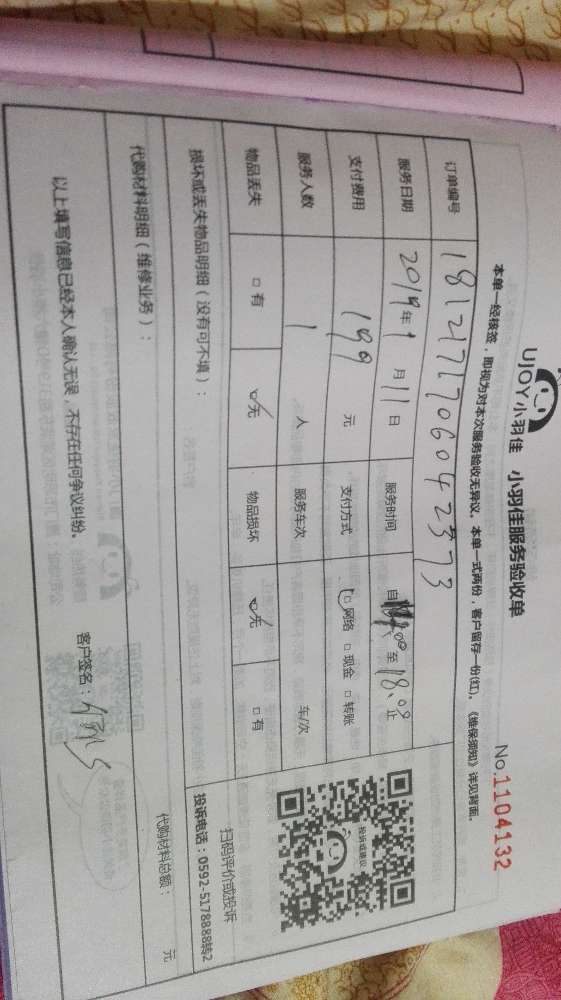 UJOY小羽佳 小羽佳服务验收单
No.1104132
本单一经核签，即视为对本次服务验收无异议，本单一式两份，客户留存一份(红)。《维保须知》详见背面。
订单编号 1812171706042373
服务日期 2019年1月11日 服务时间 自 至18:00止
支付费用 199元 支付方式 □网络 □现金 □转账
服务人数 1人 服务车次 车/次
物品丢失 □有 ☑无 物品损坏 ☑无 □有
损坏或丢失物品明细（没有可不填）：
投诉或建议
扫码评价或投诉
投诉电话：0592-5178888转2
代购材料明细（维修业务）：
代购材料总额： 元
以上填写信息已经本人确认无误，不存在任何争议纠纷。
客户签名：